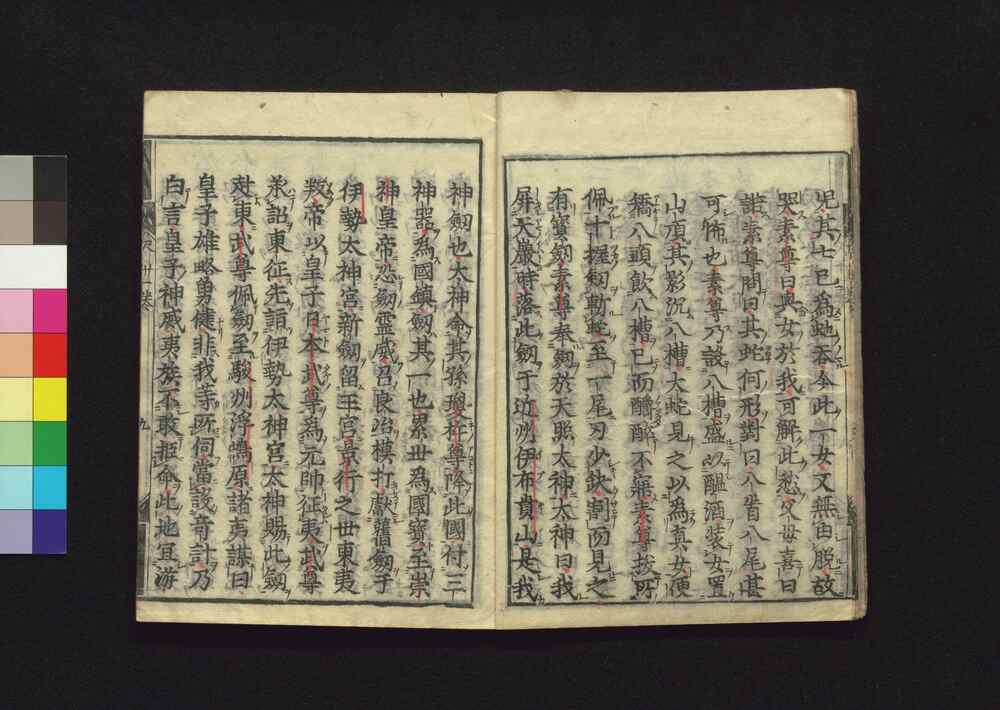 児其七已為蛇呑今此一女又無由脱故
哭素尊曰與女於我可解此愁父母喜曰
諾素尊問曰其蛇何形對曰八首八尾甚
可怖也素尊乃設八槽盛以醞酒装女置
山頂其影沉八槽大蛇見之以為真女便
八頭飲八槽已而醴酔不無素尊拔所
佩十握劔斬蛇至一尾刃少欽割而見之
有寳劔素尊奉劔於天照太神太神曰我
屏天巖時落此劔于近州伊布貴山是我
神劔也太神命其孫瓊杵尊降此國付三
神器為國鎮劔其一也累世為國寳至崇
神皇帝恐劔霊威召良冶模打献舊劔于
伊勢太神宮新劔留王宮景行之世東夷
叛帝以皇子日本武尊為元帥征夷武尊
承詔東征先詣伊勢太神宮太神賜此劔
赴東武尊佩劔至駿州浮嶋原諸夷謀曰
皇子雄略勇健非我等所伺當設奇計乃
白言皇子神威夷族不敢拒命此地宜游
九